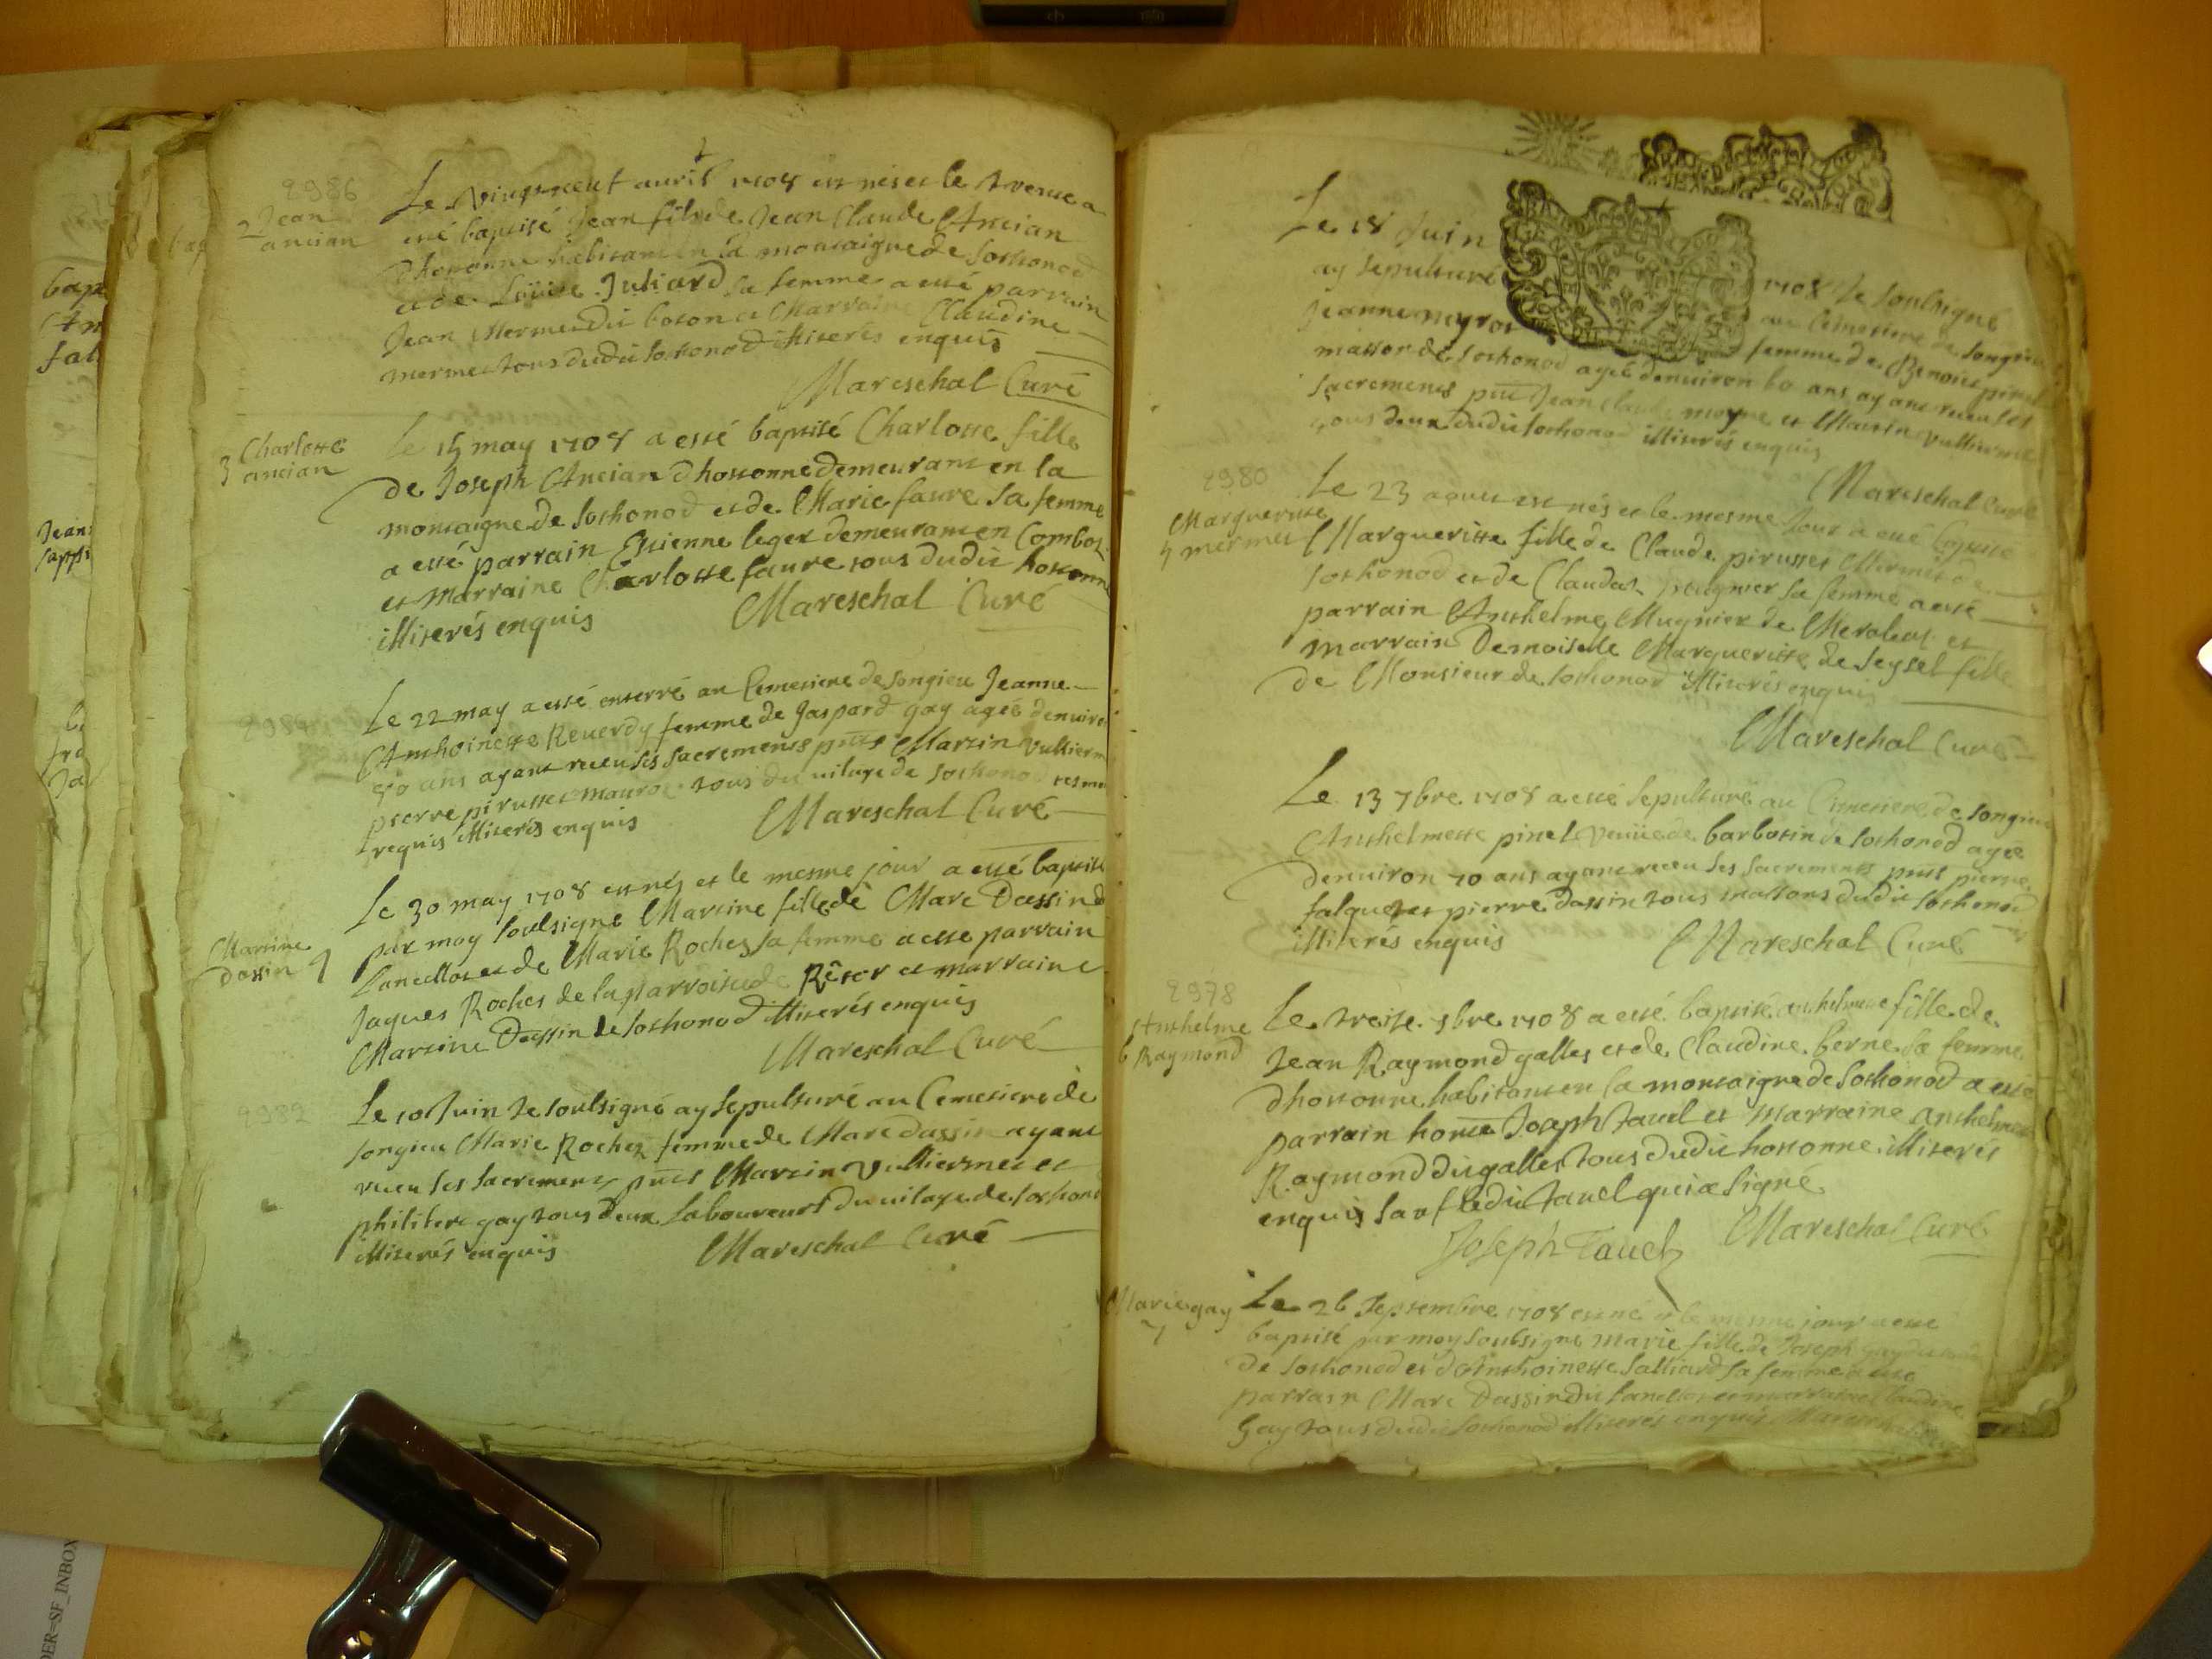 2986
2 Jean
ancian
Le vingtneuf avril 1708 est né et le a
esté baptisé Jean fils de Jean Claude Ancian
dhotonne habitant en la montaigne de Sothonod
et de Louise Juliard sa femme a esté parrain
Jean Mermet dit boton et Marraine Claudine
mermet tous dudit Sothonod illiterés enquis
Mareschal Curé
3 Charlotte
ancian
Le 15 may 1708 a esté baptisé Charlotte fille
de Joseph Ancian dhotonne demeurant en la
montaigne de Sothonod et de Marie faure sa femme
a esté parrain Etienne leger demeurant en
et Marraine Charlotte faure tous dudit hotonne
illiterés enquis Mareschal Curé
Le 22 may a esté enterré au Cemetiere de Songieu Jeanne
Anthoinette Reverdy femme de Gaspard gay agée denviron
50 ans ayant receu ses sacrements pnts Martin Vulliermet
pierre pirusset tous du vilage de Sothonod
requis illiterés enquis Mareschal Curé
Martine
dassin 4
Le 30 may 1708 est né et le mesme jour a esté baptisé
par moy soubsigné Martine fille de Marc Dassin d
Lancellot et de Marie Roches sa femme a esté parrain
Jaques Roches de la parroisse de et marraine
Martine Dassin de Sothonod illiterés enquis
Mareschal Curé
Le 10 Juin Je soubsigné ay sepulturé au Cemetiere de
Songieu Marie Rochez femme de Marc dassin ayant
receu ses sacrements pnts Martin Vulliermet et
philibert gay tous deux Laboureurs du vilage de Sothonod
illiterés enquis Mareschal Curé
Le 18 Juin 1708 Je soubsigné
ay sepulturé au Cemetiere de Songieu
Jeanne femme de Benoit
de Sothonod agée denviron 60 ans ayant receu ses
sacrements pnts Jean Claude moyne et Martin Vulliermet
tous deux dudit Sothonod illiterés enquis
Mareschal Curé
2980
Marguerite
5 mermet
Le 23 aoust est née et le mesme Jour a esté baptisé
Marguerite fille de Claude pirusset Mermet de
Sothonod et de Clauda sa femme a esté
parrain Anthelme Mugnier de et
marraine Demoiselle Marguerite de Seyssel fille
de Monsieur de Sothonod illiterés enquis
Mareschal Curé
Le 13 7bre 1708 a esté sepulturé au Cimetiere de Songieu
Anthelmette pinel veuve de barbotin de Sothonod agée
denviron 70 ans ayant receu ses sacrements pnts pierre
falquet et pierre dassin tous massons dudit Sothonod
illiterés enquis Mareschal Curé
2978
Anthelme
6 Raymond
Le treize 7bre 1708 a esté baptisé anthelmette fille de
Jean Raymond galles et de Claudine berne sa femme
dhotonne habitant en la montaigne de Sothonod a esté
parrain honête Joseph tavel et Marraine Anthelmette
Raymond dit galles tous dudit hotonne illiterés
enquis sauf ledit tavel qui a signé
Joseph Tavel Mareschal Curé
Marie gay
7
Le 26 septembre 1708 est né et le mesme jour a esté
baptisé par moy soubsigné marie fille de Joseph gay
de Sothonod et d'Anthoinette Salliard sa femme a esté
parrain Marc Dassin dit lancellot et marraine Claudine
Gay tous dudit Sothonod illiterés enquis Mareschal